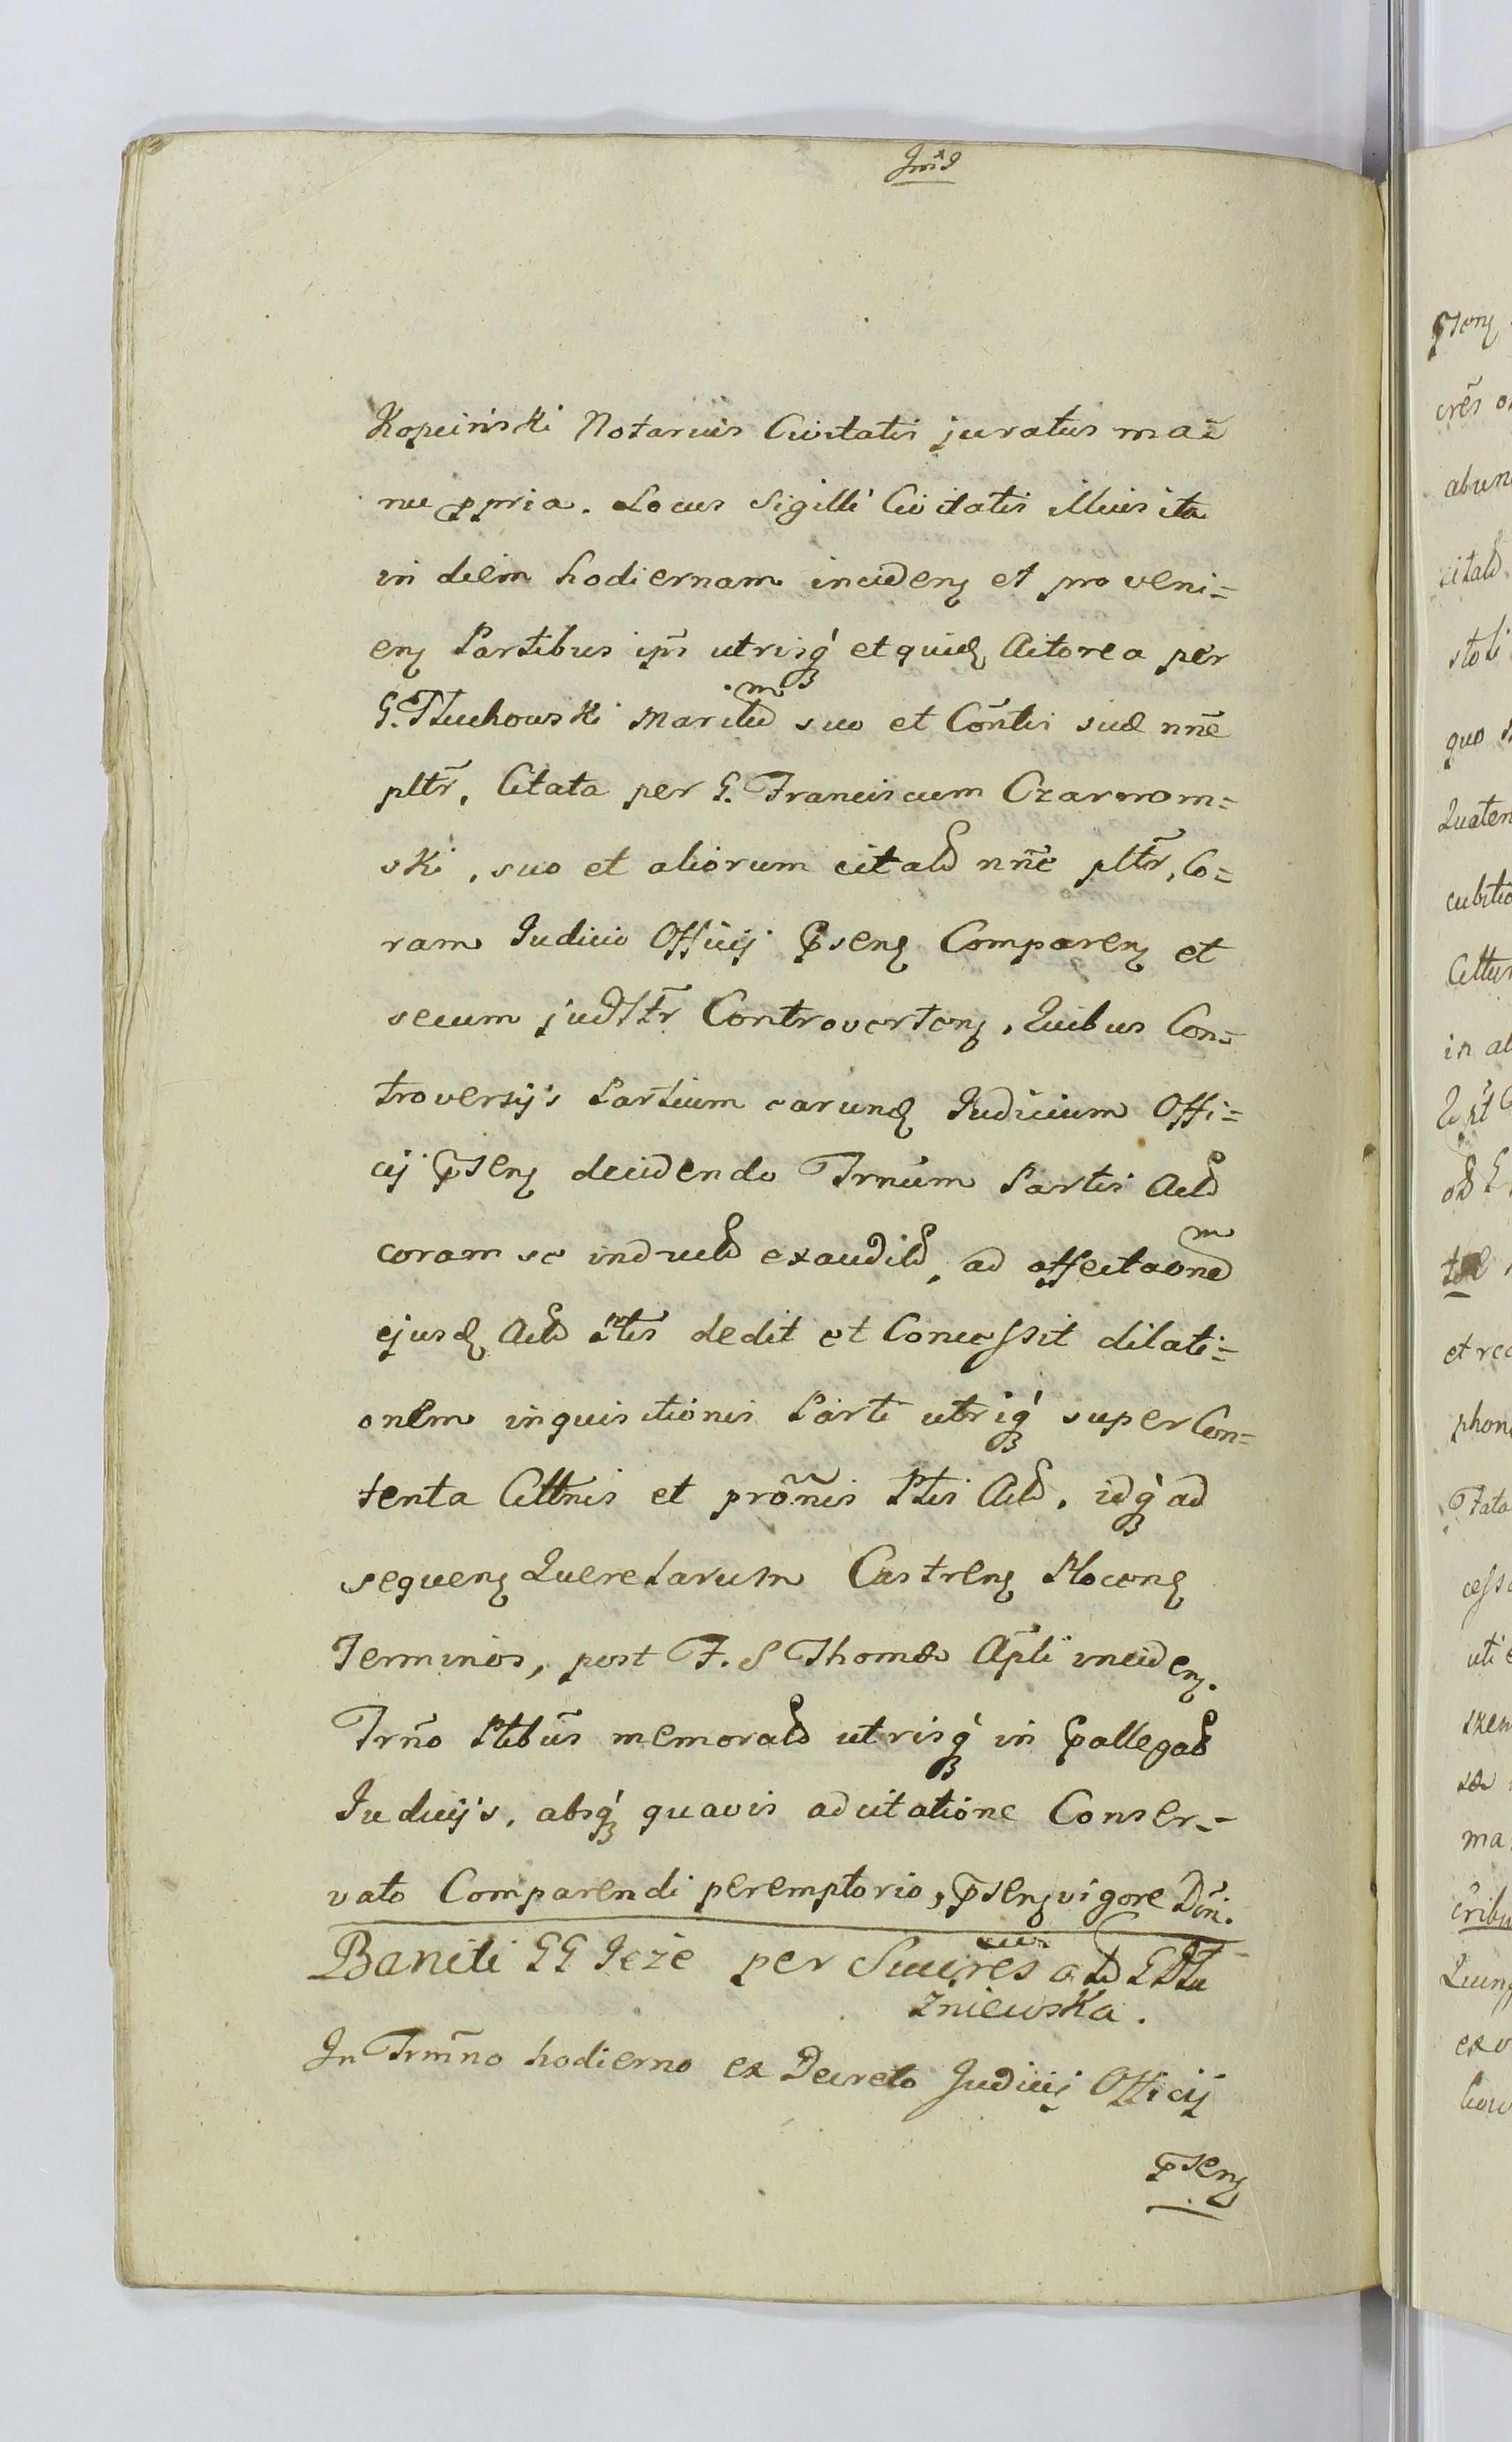 Kopciński Notarius Civitatis juratus ma=
nu ppria. Locus Sigilli Civitatis illius ita
in diem hodiernam inciden͠ et proveni=
en͠ Partibus ips̃ utrisq́ʒ et quid͠ Actorea per
G. Tluchowski Maritum suo et Cõntis suæ nñe
pltr̃. Citata per G. Franciscum Czarnom=
ski, suo et aliorum citat͠ nñe pltr̃, Co=
ram Judicio Officij p̃sen͠ Comparen͠ et
secum judltr̃ Controverten͠, Quibus Con=
troversijs Partium earund͠ Judicium Offi=
cij p̃sen͠ decidendo Trnũm Partis Act͠
coram se induct͠ exaudit͠, ad affectaõnem
ejusd͠ Act͠ Ptis dedit et Concessit dilati=
onem inquisitionis Parti utriq́ʒ super Con=
tenta Cittnis et prõnis Ptis Act͠. idq́ʒ ad
sequen͠ Querelarum Castren͠ Plocen͠
Terminos, post F. S Thomæ Apl̃i inciden͠.
Trño Ptibũs memorat͠ utrisq́ʒ in p̃allegat͠
Judicijs, absq́ʒ quavis adcitatione Conser=
vato Comparendi peremptorio, p̃sen͠ vigore Dñi.
Baniti GG Jeże per
zniewska.
In Trm̃no hodierno ex Decreto Judicij Officij
p̃sen͠